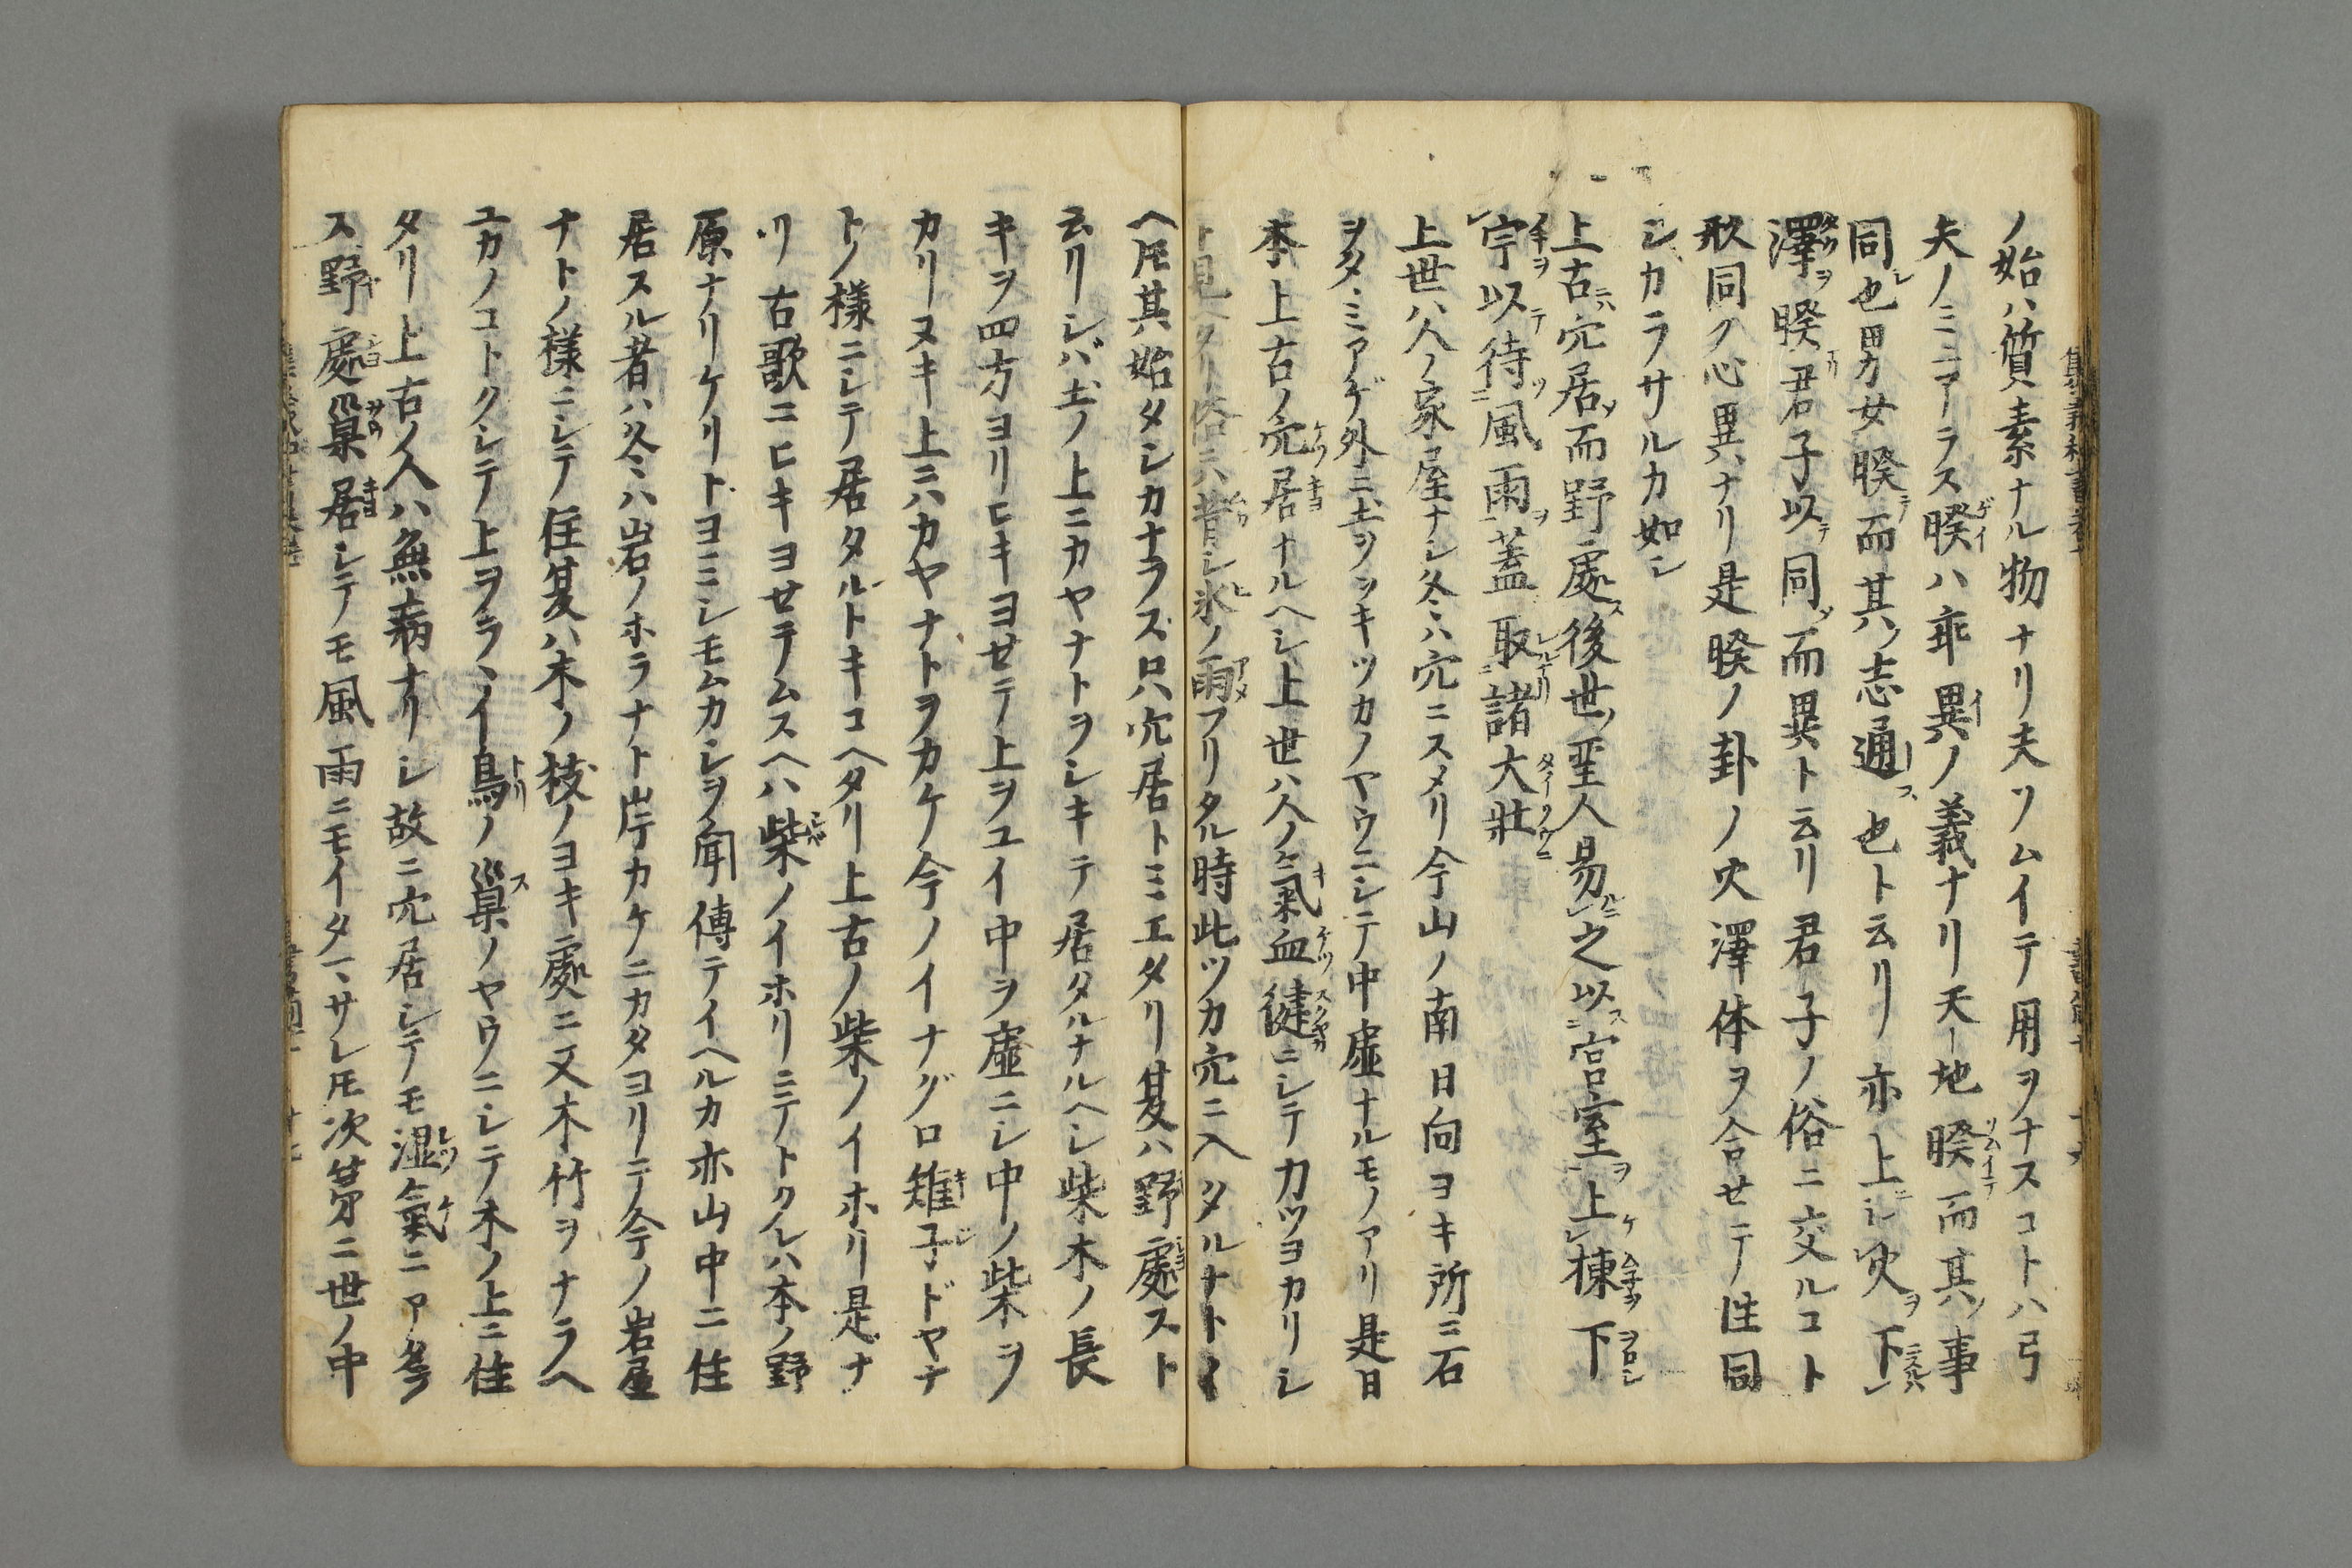 ノ始ハ質素ナル物ナリ夫ソムイテ用ヲナスコトハ弓
矢ノミニアラス睽ハ乖異ノ義ナリ天地睽而其事
同也男女睽而其志通也ト云リ亦上火下
澤睽君子以同而異ト云リ君子ノ俗ニ交ルコト
形同ク心異ナリ是睽ノ卦ノ火澤体ヲ合セテ性同
シカラサルカ如シ
上古穴居而野處後世聖人易之以宮室上棟下
宇以待風雨蓋取諸大壯
上世ハ人ノ家屋ナシ冬ハ穴ニスメリ今山ノ南日向ヨキ所ニ石
ヲタヽミアゲ外ニ土ヲツキツカノヤウニシテ中虚ナルモノアリ是日
本上古ノ穴居ナルヘシ上世ハ人ノ氣血健ニシテ力ツヨカリシ
ト見ヘタリ俗ニハ昔シ氷ノ雨フリタル時此ツカ穴ニ入タルナトイ
ヘ𪜈其始タシカナラス只穴居トミエタリ夏ハ野處スト
云リシバ土ノ上ニカヤナトヲシキテ居タルナルヘシ柴木ノ長
キヲ四方ヨリヒキヨセテ上ヲユイ中ヲ虚ニシ中ノ柴ヲ
カリヌキ上ニハカヤナトヲカケ今ノイナグロ雉子ドヤナ
トノ様ニシテ居タルトキコヘタリ上古ノ柴ノイホリ是ナ
リ古歌ニヒキヨセテムスヘハ柴ノイホリニテトクレハ本ノ野
原ナリケリトヨミシモムカシヲ聞傳テイヘルカ亦山中ニ住
居スル者ハ冬ハ岩ノホラナト岸カケニカタヨリテ今ノ岩屋
ナトノ様ニシテ住夏ハ木ノ枝ノヨキ處ニ又木竹ヲナラヘ
ユカノコトクシテ上ヲラヽイ鳥ノ巢ノヤウニシテ木ノ上ニ住
タリ上古ノ人ハ無病ナリシ故ニ穴居シテモ濕氣ニアタラ
ス野處巢居シテモ風雨ニモイタマサレ𪜈次第ニ世ノ中